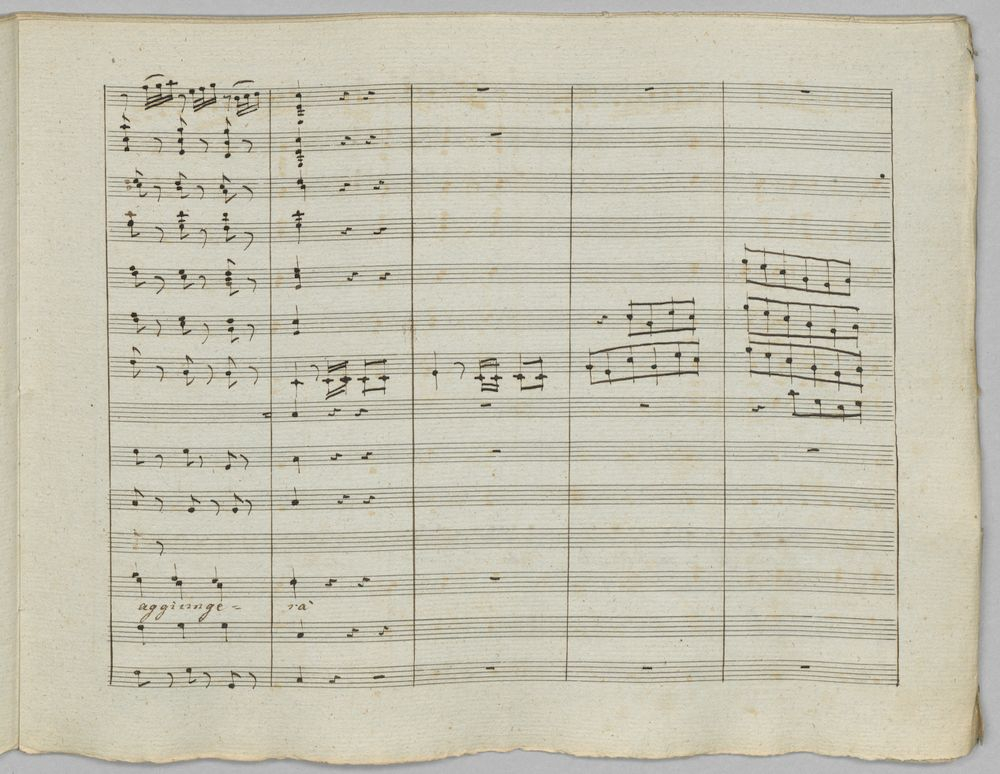 aggiunge= rà